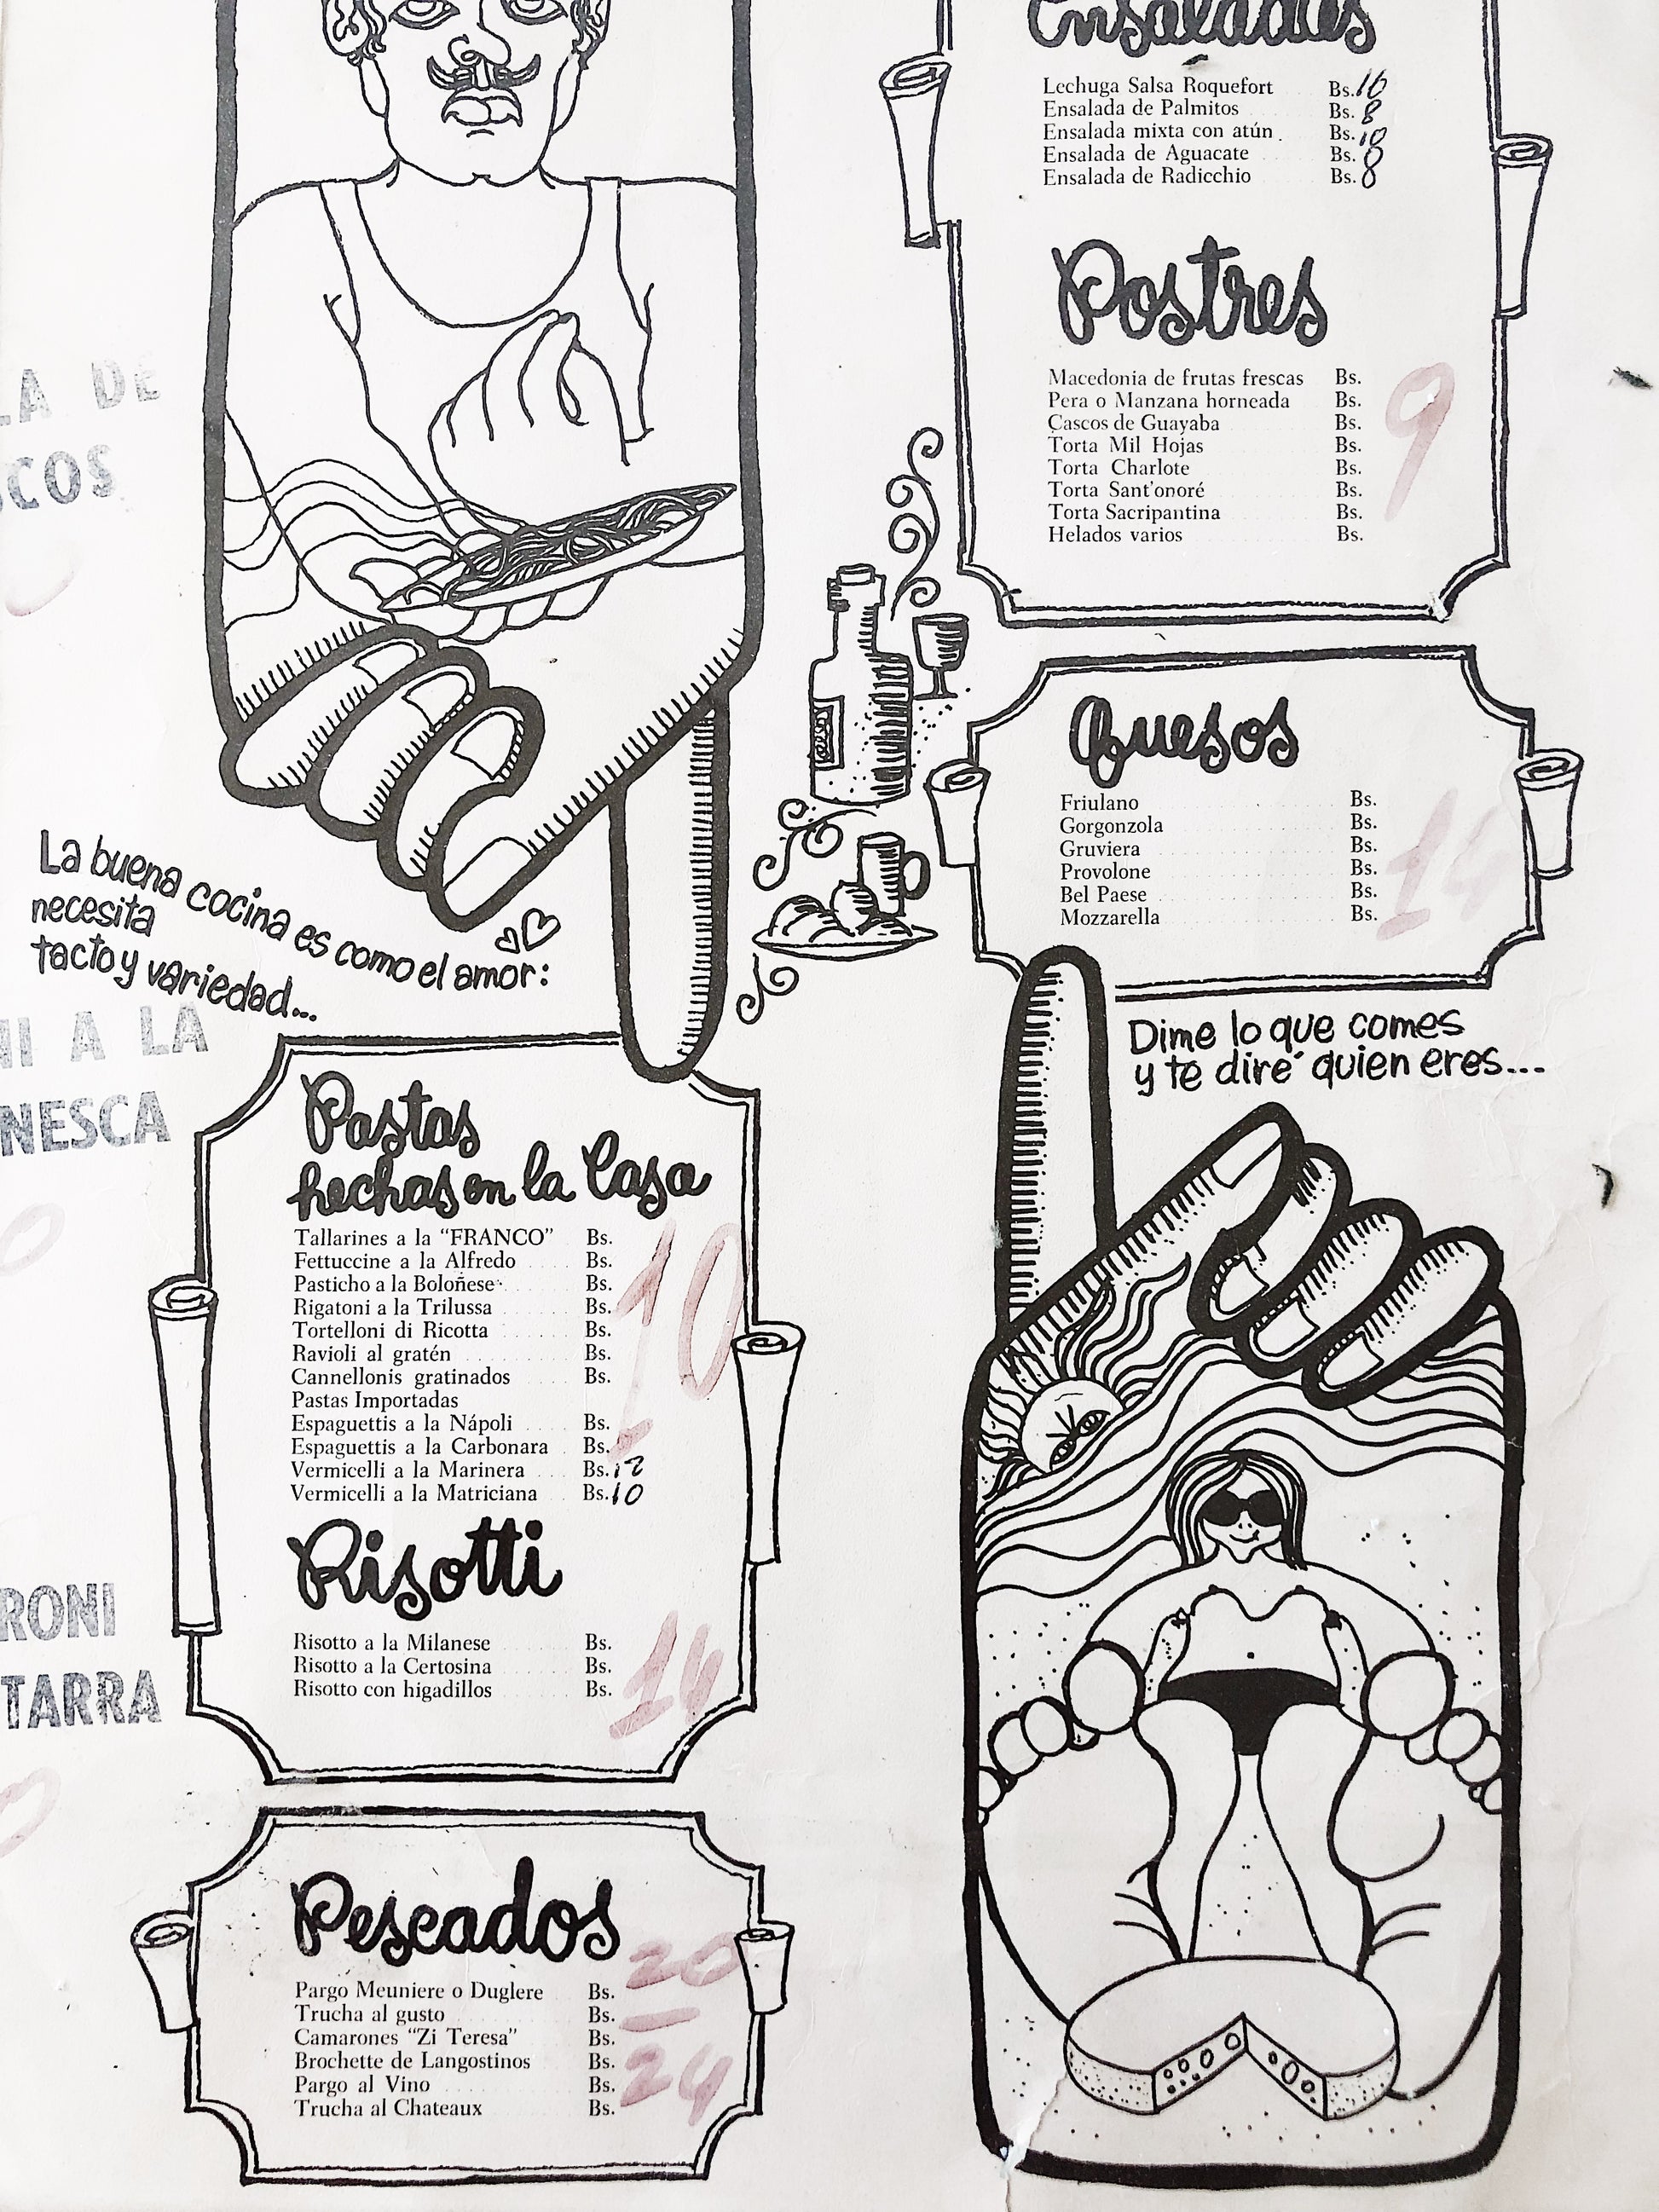 LA DE
COS
La buena cocina es como el amor:
necesita
tacto y variedad...
NI A LA
NESCA
RONI
TARRA
Pastas
hechas en la Casa
Tallarines a la "FRANCO" Bs.
Fettuccine a la Alfredo Bs.
Pasticho a la Boloñese Bs.
Rigatoni a la Trilussa Bs.
Tortelloni di Ricotta Bs.
Ravioli al gratén Bs.
Cannellonis gratinados Bs.
10
Pastas Importadas
Espaguettis a la Nápoli Bs.
Espaguettis a la Carbonara Bs.
Vermicelli a la Marinera Bs. 12
Vermicelli a la Matriciana Bs. 10
Risotti
Risotto a la Milanese Bs.
Risotto a la Certosina Bs.
Risotto con higadillos Bs.
14
Pescados
20
Pargo Meuniere o Duglere Bs.
Trucha al gusto Bs.
Camarones "Zi Teresa" Bs.
Brochette de Langostinos Bs.
24
Pargo al Vino Bs.
Trucha al Chateaux Bs.
Ensaladas
Lechuga Salsa Roquefort Bs.
Ensalada de Palmitos Bs. 8
Ensalada mixta con atún Bs. 10
Ensalada de Aguacate Bs. 8
Ensalada de Radicchio Bs. 8
Postres
Macedonia de frutas frescas Bs.
Pera o Manzana horneada Bs.
Cascos de Guayaba Bs.
Torta Mil Hojas Bs.
9
Torta Charlote Bs.
Torta Sant'onoré Bs.
Torta Sacripantina Bs.
Helados varios Bs.
Quesos
Friulano Bs.
Gorgonzola Bs.
Gruviera Bs.
Provolone Bs.
14
Bel Paese Bs.
Mozzarella Bs.
Dime lo que comes
y te diré quien eres...